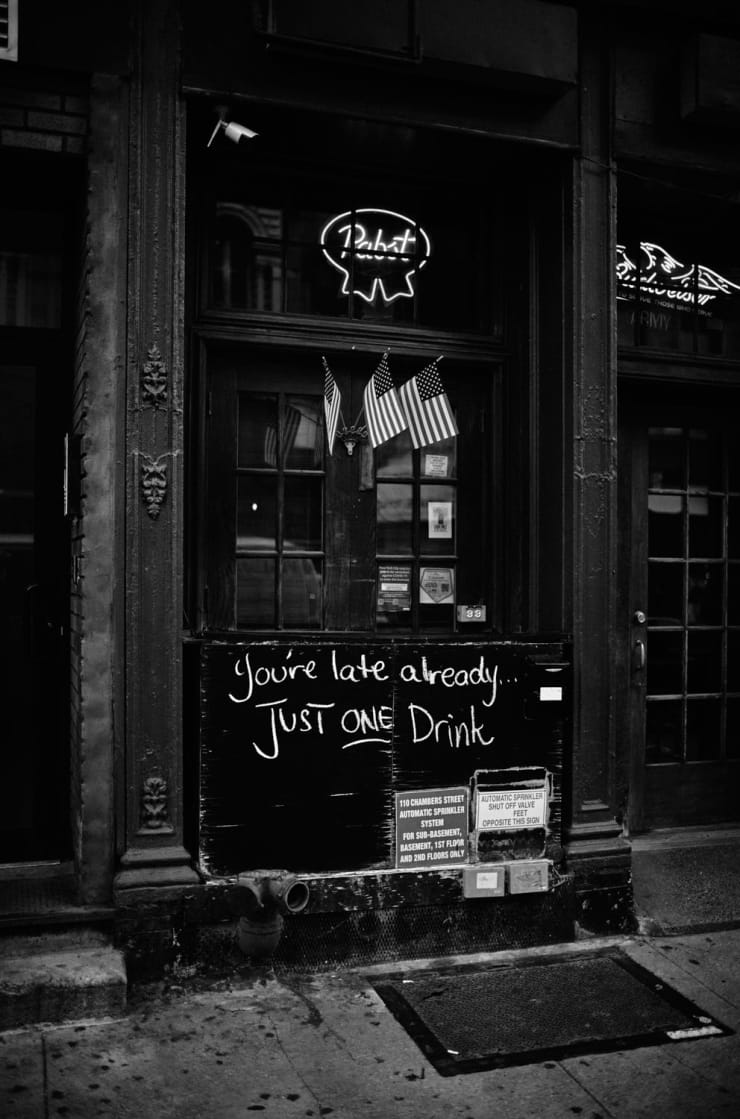 Pabst
Budweiser
ARMY
You're late already...
JUST ONE Drink
110 CHAMBERS STREET
AUTOMATIC SPRINKLER
SYSTEM
FOR SUB-BASEMENT,
BASEMENT, 1ST FLOOR
AND 2ND FLOORS ONLY
AUTOMATIC SPRINKLER
SHUT OFF VALVE
FEET
OPPOSITE THIS SIGN